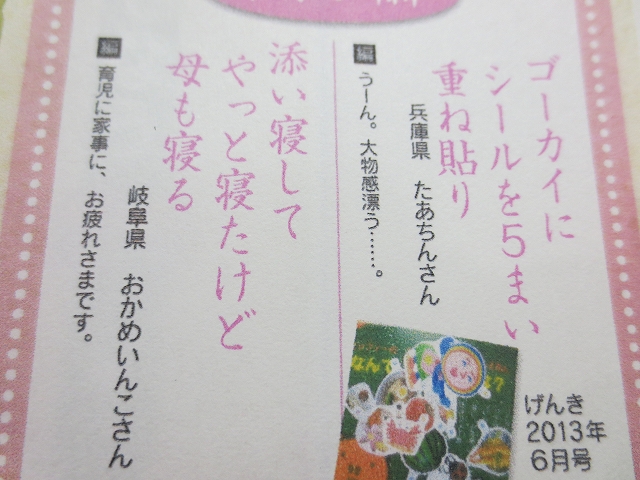 ゴーカイに
シールを5まい
重ね貼り
兵庫県 たあちんさん
編 うーん。大物感漂う……。
げんき
2013年
6月号
添い寝して
やっと寝たけど
母も寝る
岐阜県 おかめいんこさん
編 育児に家事に、お疲れさまです。